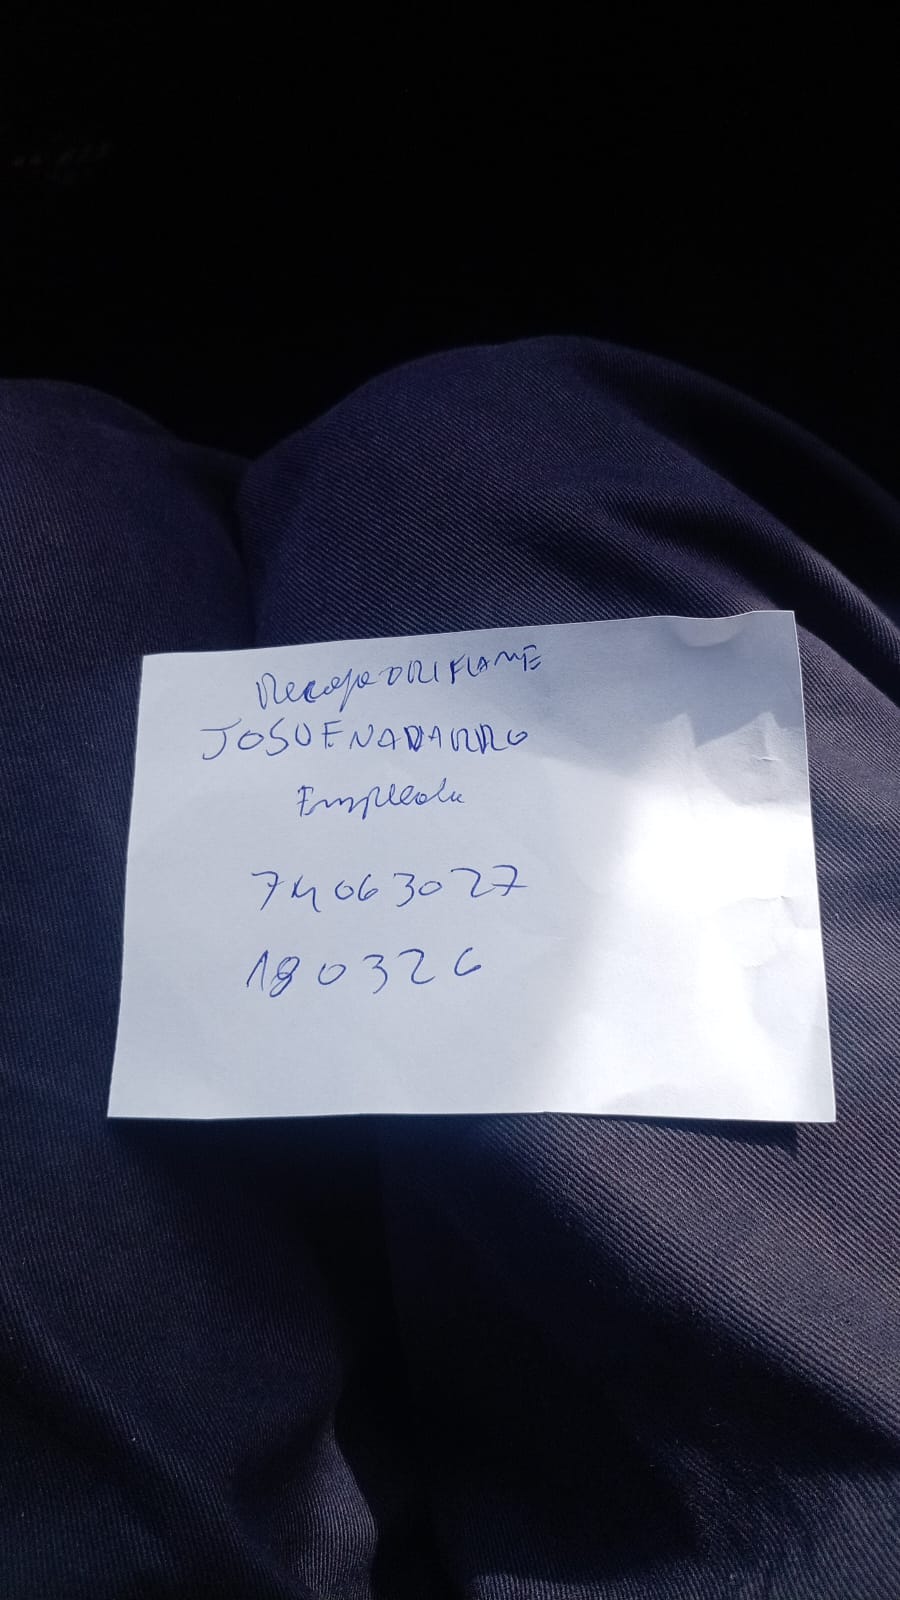 Recojo ORIFLAME
JOSUE NAVARRO
Empleado
74063027
180326